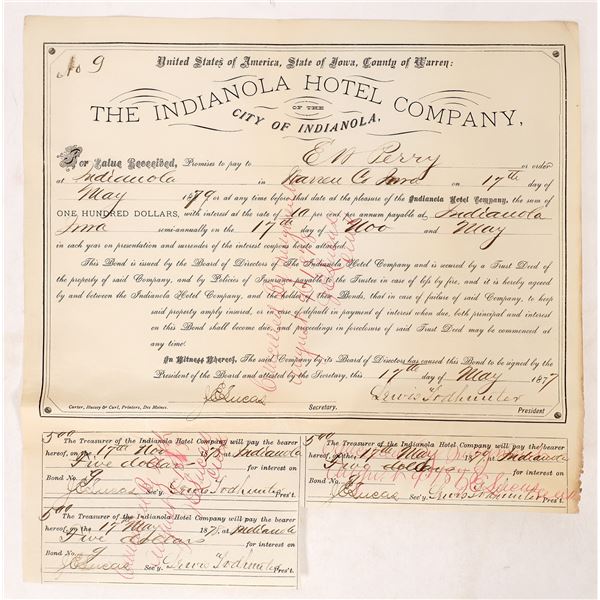 No 9
United States of America, State of Iowa, County of Warren:
THE INDIANOLA HOTEL COMPANY,
OF THE
CITY OF INDIANOLA,
For Value Received, Promises to pay to E W Perry or order
at Indianola in Warren Co Iowa on 17th day of
May 1879 or at any time before that date at the pleasure of the Indianola Hotel Company, the sum of
ONE HUNDRED DOLLARS, with interest at the rate of 10 per cent. per annum payable at Indianola
Iowa semi-annually on the 17th day of Nov and May
in each year on presentation and surrender of the interest coupons hereto attached.
This Bond is issued by the Board of Directors of The Indianola Hotel Company and is secured by a Trust Deed of
the property of said Company, and by Policies of Insurance payable to the Trustee in case of loss by fire, and it is hereby agreed
by and between the Indianola Hotel Company, and the holder of these Bonds, that in case of failure of said Company, to keep
said property amply insured, or in case of default in payment of interest when due, both principal and interest
on this Bond shall become due, and proceedings in foreclosure of said Trust Deed may be commenced at
any time.
In Witness Whereof, The said Company by its Board of Directors has caused this Bond to be signed by the
President of the Board and attested by the Secretary, this 17th day of May 1877
J C Lucas Secretary. Lewis Todhunter President
Carter, Hussey & Curl, Printers, Des Moines.
5.00
The Treasurer of the Indianola Hotel Company will pay the bearer
hereof, on the 17th Nov 187 at Indianola
Five dollars for interest on
Bond No. 9
J C Lucas Sec'y. Lewis Todhunter Pres't.
5.00
The Treasurer of the Indianola Hotel Company will pay the bearer
hereof, on the 17th May 1879, at Indianola
Five dollars for interest on
Bond No. 9
J C Lucas Sec'y. Lewis Todhunter Pres't.
5.00
The Treasurer of the Indianola Hotel Company will pay the bearer
hereof, on the 17th May 187 at Indianola
Five dollars for interest on
Bond No. 9
J C Lucas Sec'y. Lewis Todhunter Pres't.